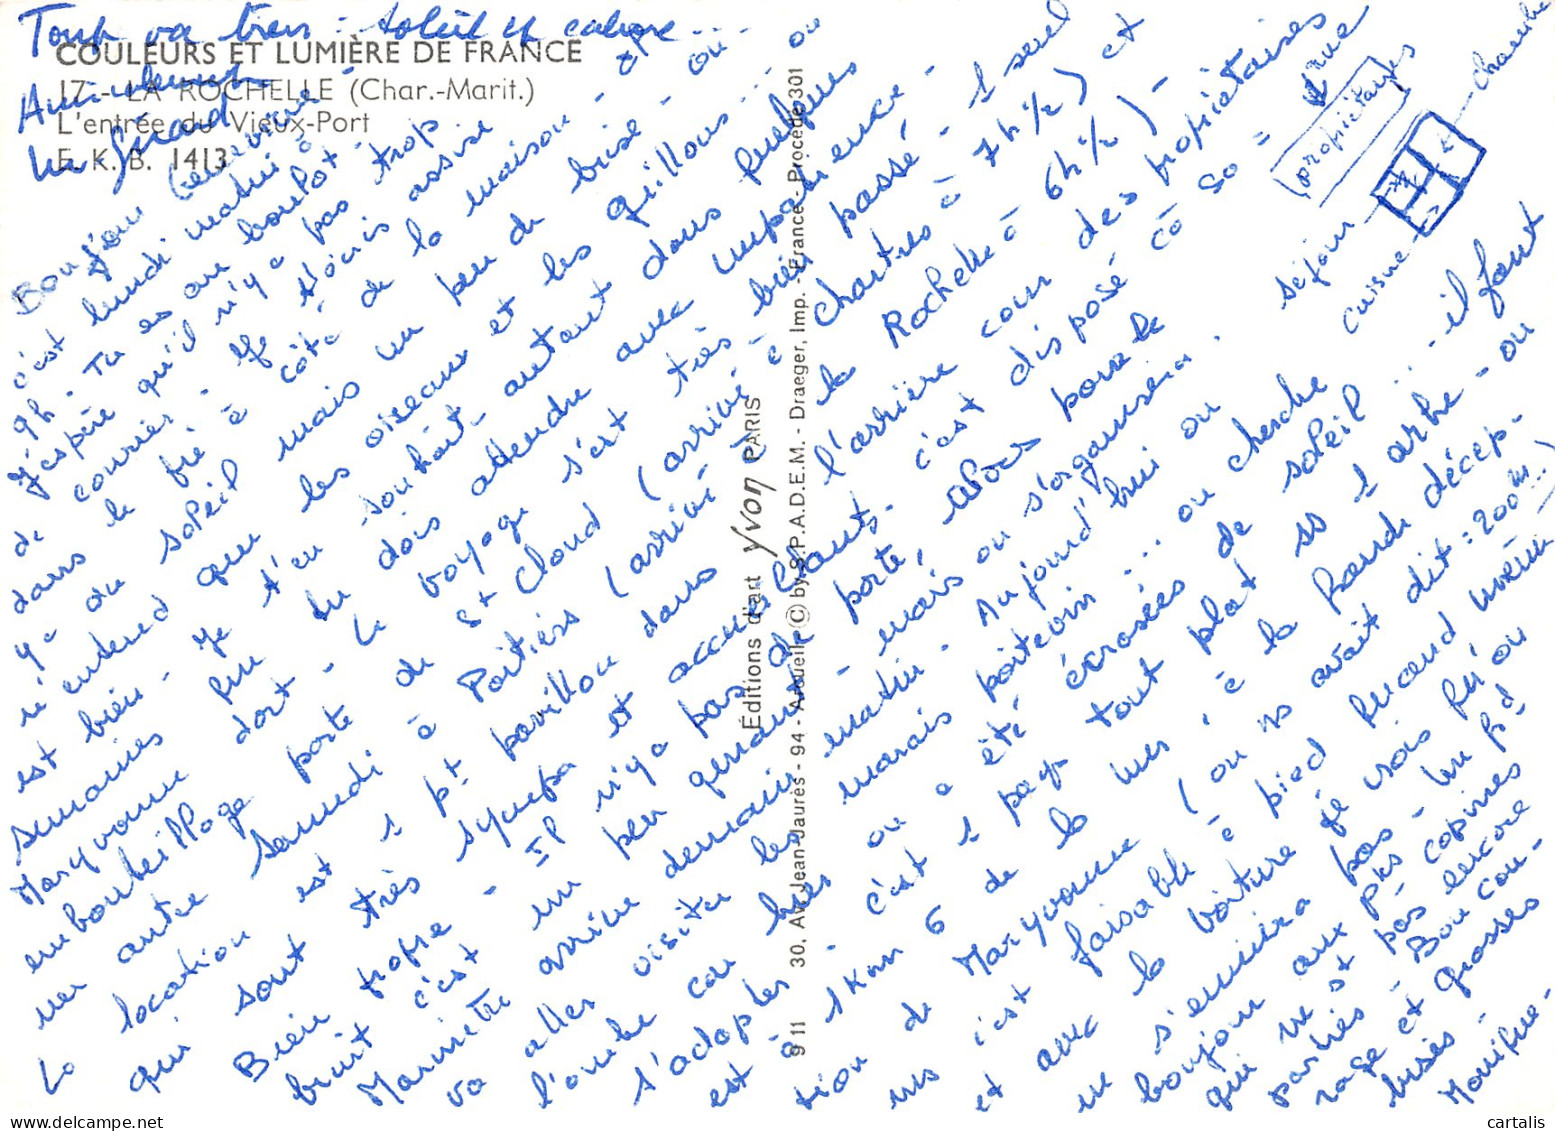 Tout va bien : soleil et calme ...
Amicalement
COULEURS ET LUMIÈRE DE FRANCE
17 - LA ROCHELLE (Char.-Marit.)
L'entrée du Vieux-Port
E. K. B. 1413
Bonjour
c'est lundi matin -
9h - Tu es au boulot.
J'espère qu'il n'y a pas trop
de courrier - Je t'écris assise
dans le pré à côté de la maison -
y a du soleil mais un peu de brise -
n'entend que les oiseaux et les grillons ... on
est bien - Je t'en souhaite autant dans quelques
semaines que tu dois attendre avec impatience -
Maryvonne dort - Le voyage s'est très bien passé - 1 seul
embouteillage porte de St Cloud (arrivé à Chartres à 7h ½) et
un autre samedi à Poitiers (arrivé à la Rochelle à 6h ½) -
La location est 1 pt pavillon dans l'arrière cour des propriétaires
qui sont très sympa et accueillants. c'est disposé co so = rue
propriétaires
chambre
séjour
cuisine
Bien propre - Il n'y a pas de porte, alors pour le
bruit c'est un peu gênant - mais on s'organisera.
Marinette arrive demain matin - Aujourd'hui on
va aller visiter les marais poitevin ... on cherche
l'ombre car hier on a été écrasées de soleil ... il faut
s'adapter - c'est 1 pays tout plat ss 1 arbre - on
est à 1km 6 de la mer, à la grande décep-
tion de Maryvonne (on ns avait dit : 200m ...)
mais c'est faisable à pied quand même
et avec la voiture je crois qu'on
ne s'ennuiera pas - Un gd
bonjour aux ptes copines
qui ne st pas encore
parties - Bon cou-
rage et grosses
bises -
Monique -
Éditions d'art Yvon PARIS
9 11 30, Av. Jean-Jaurès - 94 - Arcueil © by S.P.A.D.E.M. - Draeger, Imp. - France - Procédé 301
cartalis